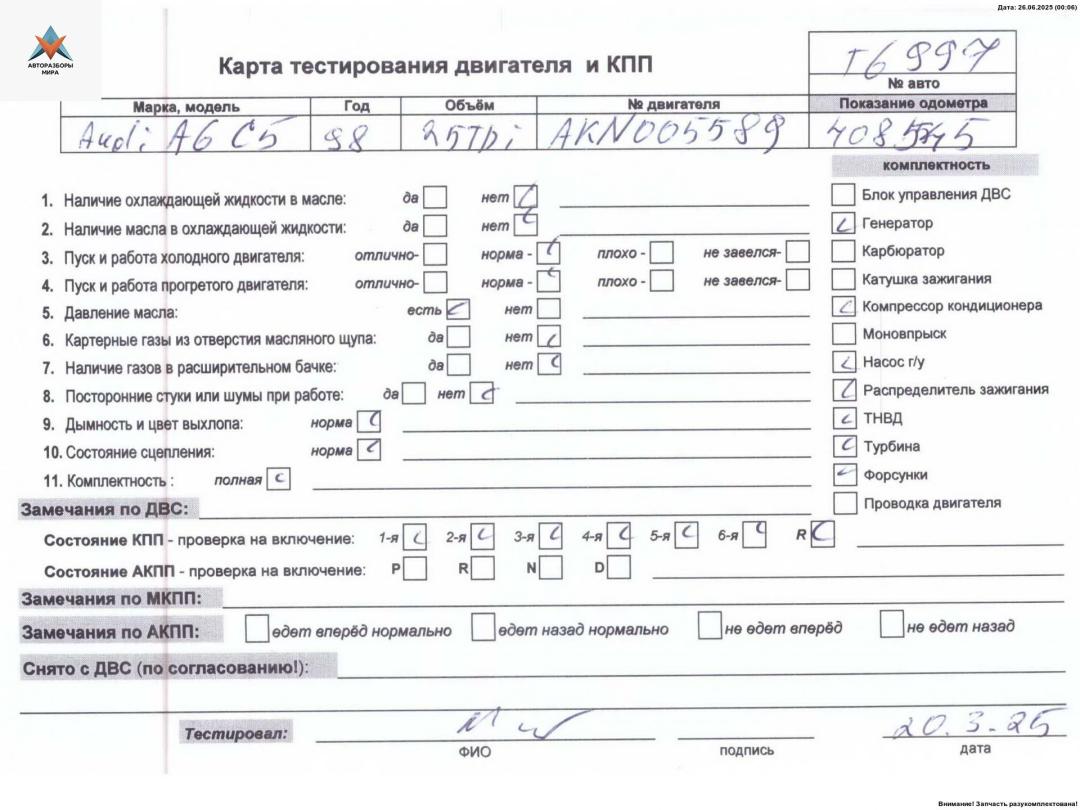 Дата: 26.06.2025 (00:06)
АВТОРАЗБОРЫ
МИРА
Карта тестирования двигателя и КПП
T6997
№ авто
Марка, модель Год Объём № двигателя Показание одометра
Audi A6 C5 98 25TDi AKN005589 408545
комплектность
1. Наличие охлаждающей жидкости в масле: да нет
Блок управления ДВС
2. Наличие масла в охлаждающей жидкости: да нет
Генератор
3. Пуск и работа холодного двигателя: отлично- норма - плохо - не завелся-
Карбюратор
4. Пуск и работа прогретого двигателя: отлично- норма - плохо - не завелся-
Катушка зажигания
5. Давление масла: есть нет
Компрессор кондиционера
6. Картерные газы из отверстия масляного щупа: да нет
Моновпрыск
7. Наличие газов в расширительном бачке: да нет
Насос г/у
8. Посторонние стуки или шумы при работе: да нет
Распределитель зажигания
9. Дымность и цвет выхлопа: норма
ТНВД
10. Состояние сцепления: норма
Турбина
11. Комплектность : полная
Форсунки
Замечания по ДВС:
Проводка двигателя
Состояние КПП - проверка на включение: 1-я 2-я 3-я 4-я 5-я 6-я R
Состояние АКПП - проверка на включение: P R N D
Замечания по МКПП:
Замечания по АКПП: едет вперёд нормально едет назад нормально не едет вперёд не едет назад
Снято с ДВС (по согласованию!):
Тестировал: 20.3-25
ФИО подпись дата
Внимание! Запчасть разукомплектована!